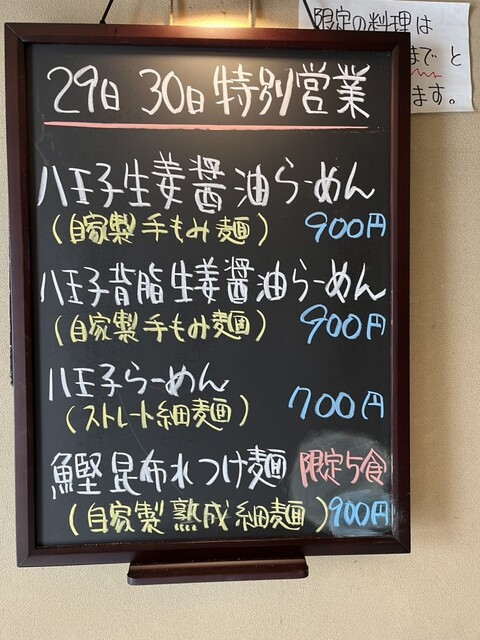 29日 30日 特別営業
八王子生姜醤油らーめん
(自家製手もみ麺) 900円
八王子背脂生姜醤油らーめん
(自家製手もみ麺) 900円
八王子らーめん
(ストレート細麺) 700円
鰹昆布水つけ麺 限定5食
(自家製熟成細麺) 900円
限定の料理は
までと
ます。